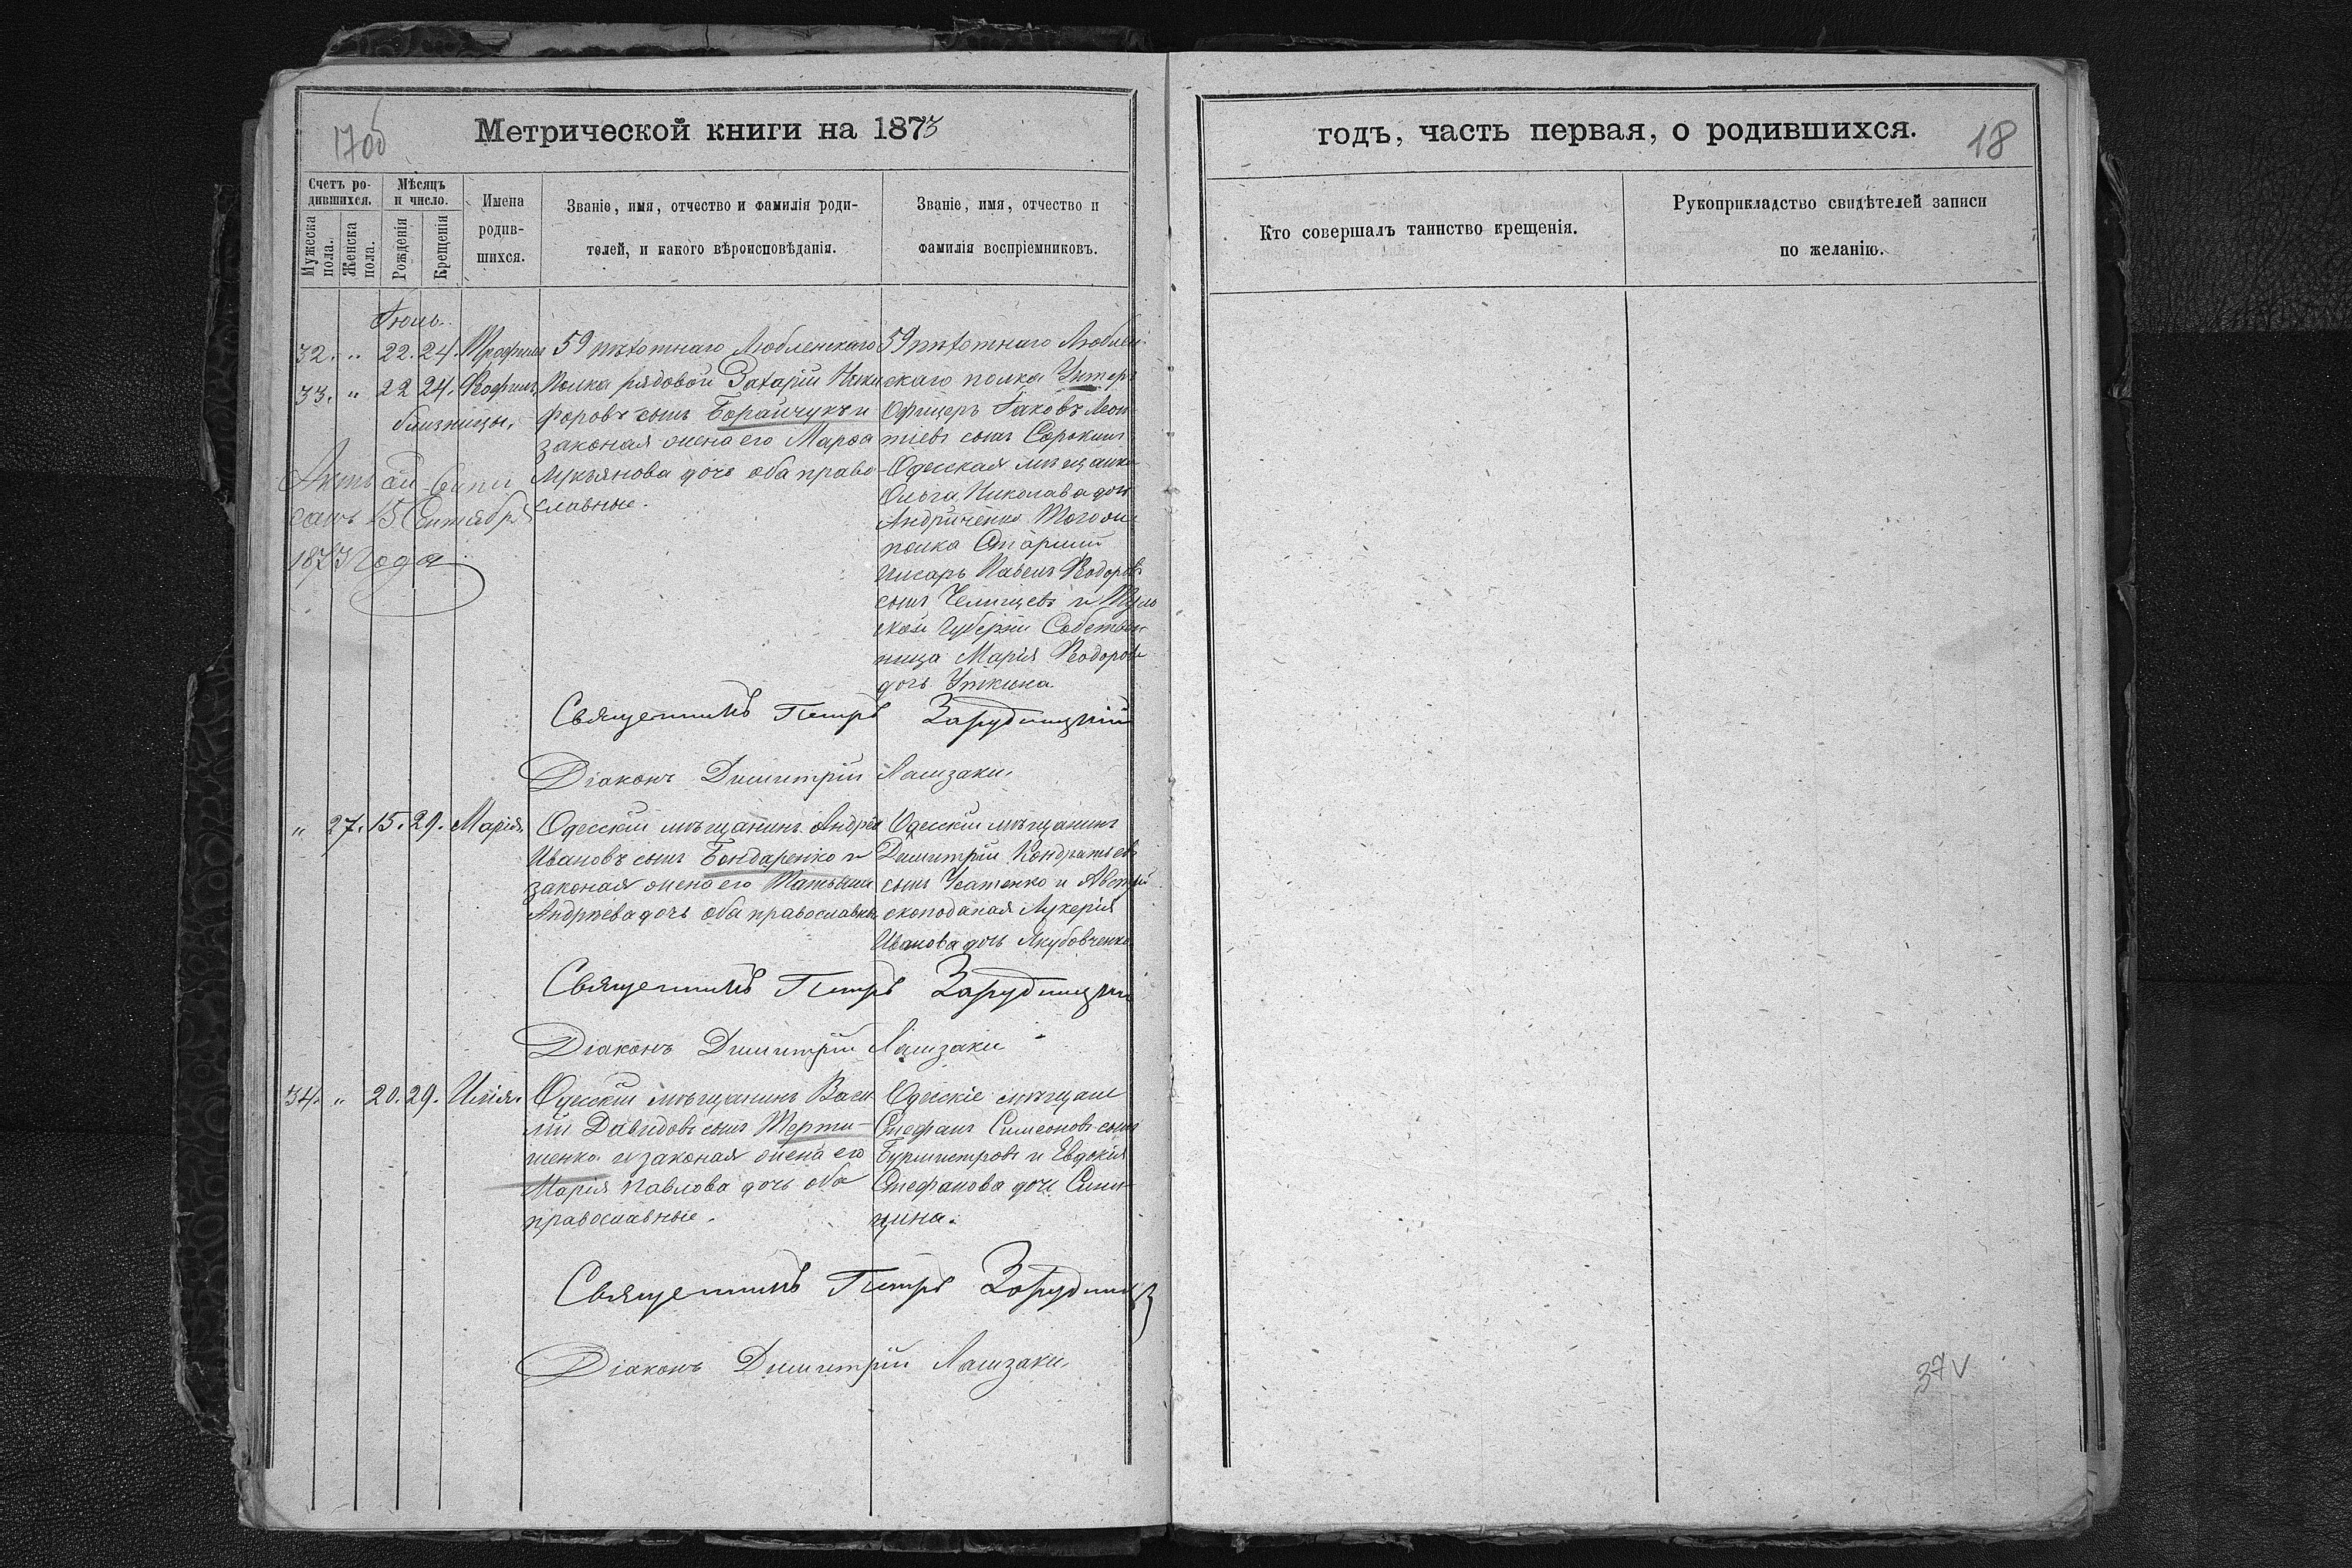 Метрической книги на 1873
годъ, часть первая, о родившихся.
18
Счетъ ро-
дившихся.
Мѣсяцъ
и число.
Мужеска
пола.
Женска
пола.
Рожденія
Крещенія
Имена
родив-
шихся.
Званіе, имя, отчество и фамилія роди-
телей, и какого вѣроисповѣданія.
Званіе, имя, отчество и
фамилія воспріемниковъ.
Кто совершалъ таинство крещенія.
Рукоприкладство свидѣтелей записи
по желанію.
Іюль.
32. " 22. 24. Трофимъ
33. " 22 24.
близнецы.
15 Сентября
1873 года
59 пѣхотнаго Любленскаго
полка рядовой Захарій Ники
форовъ сынъ Борайчукъ и
законая жена его Марѳа
Лукьянова дочь оба право-
славные.
59 пѣхотнаго Люблен-
скаго полка Унтеръ
Офицеръ Іаковъ Леон
тіевъ сынъ Сорокинъ
Одесская мѣщанка
Ольга Николава дочь
Андриченко Тогоже
полка Старшій
писарь Павелъ Ѳедоровъ
сынъ Челищевъ и Туль
ской Губерніи Собствен
ница Марія Ѳедорова
дочь Уткина.
Священникъ Петръ Зарудницкій
Діаконъ Димитрій Ламзаки
" 27. 15. 29. Марія.
Одесскій мѣщанинъ Андрей
Ивановъ сынъ Бондаренко и
законая жена его Татьяна
Андрѣева дочь оба православны
Одесскій мѣщанинъ
Димитрій Кондратьевъ
сынъ Усатенко и Австрій
скоподаная Лукерія
Иванова дочь Якубовченко
Священникъ Петръ Зарудницкій
Діаконъ Димитрій Ламзаки
34. " 20. 29. Илія.
Одесскій мѣщанинъ Васи
лій Давидовъ сынъ Терти-
шенко и законая жена его
Марія Павлова дочь оба
православные.
Одесскіе мѣщане
Стефанъ Симеоновъ сынъ
Бурмистровъ и Евдокія
Стефанова дочь Сини-
цина.
Священникъ Петръ Зарудницкій
Діаконъ Димитрій Ламзаки
37 V